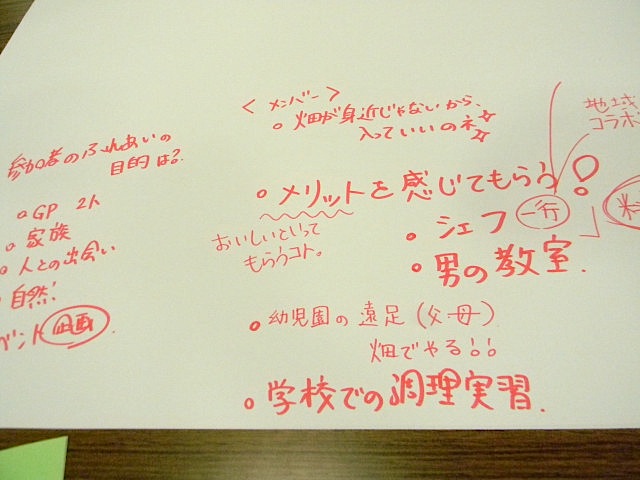 参加者のふれあいの
目的は?
GP 2人
家族
人との出会い
自然!
ベント 企画
<メンバー>
畑が身近じゃないから、
入っていいのネ☆☆
メリットを感じてもらう!
おいしいといって
もらうコト。
シェフ 一行
男の教室.
幼児園の遠足(父母)
畑でやる!!
学校での調理実習.
地域
コラボ